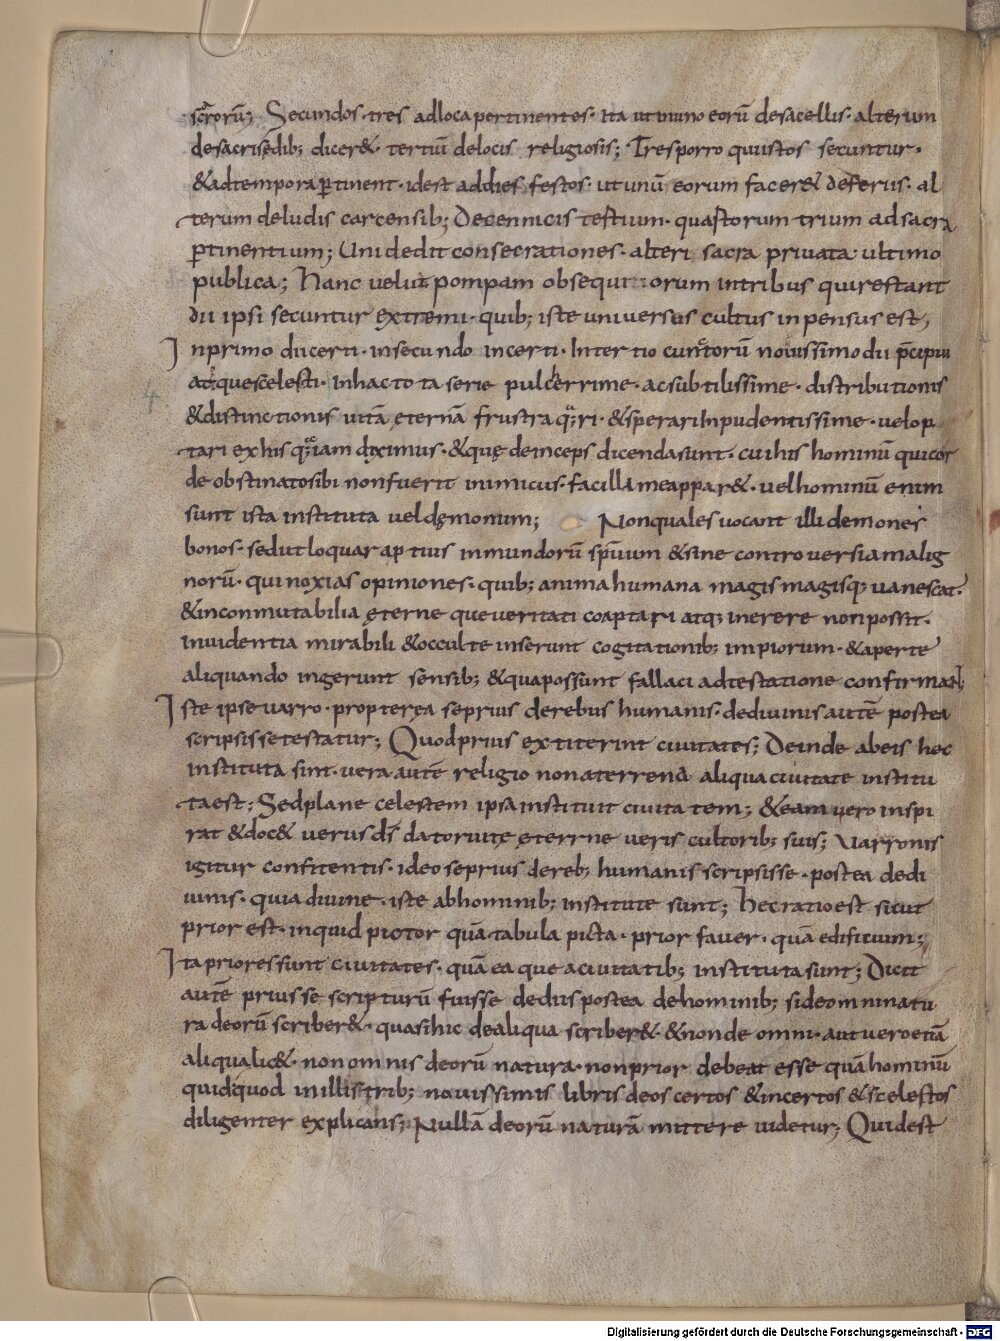 scrorū; Secundos · tres adloca pertinentes · ita utinuno eorū desacellis · alterum
desacrisedib; dicer& · tertiū delocis religiosis; Tres porro quiistos secuntur ·
&adtempora ptinent · idest addies festos · ut unū eorum facer& deferiis · al
terum deludis carcensib; Decennicis testium · quastorum trium adsacra
ptinentium; Uni dedit consecrationes · alteri sacra priuata · ultimo
publica; Hanc uelut pompam obsequi orum intribus quirestant
dii ipsi secuntur extremi · quib; iste uniuersus cultus inpensus est;
Inprimo dii certi · insecundo incerti · Intertio cunctorū nouissimo dii p̄cipui
atquescelesti · Inhac tota serie pulcerrime · acsubtilissime · distributionis
&distinctionis uitā ęternā frustra q̄ri · &sperari Inpudentissime · uelop
tari ex his q̄ iam diximus · &quę deinceps dicendasunt · cuihis hominū quicor
de obstinatosibi nonfuerit inimicus · facillimeappar& · uelhominū enim
sunt ista instituta uel dęmonum; Nonquales uocant illi demones
bonos · sedut loquar aptius inmundorū sp̄uum &sine controuersiamalig
norū · qui noxias opiniones · quib; anima humana magis magisq; uanescat ·
&inconmutabilia ęterne queueritati coaptari atq; inerere nonpossit ·
Inuidentia mirabili &occulte inserunt cogitationib; impiorum · &aperte
aliquando ingerunt sensib; &quapossunt fallaci adtestatione confirmant;
Iste ipse uarro · propterea seprius derebus humanis · dediuinis autē postea
scripsissetestatur; Quodprius extiterint ciuitates; Deinde abeis hec
instituta sint · uera autē religio nonaterrena aliqua ciuitate institu
taest; Sedplane celestem ipsa instituit ciuitatem; &eam uero inspi
rat &doc& uerus d̄s datoruitę ęterrne ueris cultorib; suis; Uarronis
igitur confitentis · ideo seprius dereb; humanis scripsisse · postea dedi
uinis · quia diuine · iste abhominib; institute sunt; hec ratioest sicut
prior est · inquid pictor quā tabula picta · prior fauer · quā edificium;
Ita prioressunt ciuitates · quā ea que aciuitatib; instituta sunt; Dicit
autē priusse scripturū fuisse dediis postea dehominib; sideomninatu
ra deorū scriber& · quasihic dealiqua scriber& · &nonde omni · aut uero etiā
aliqualic& · non omnis deorū natura · nonprior debeat esse quā hominū
quidquod inillis trib; nouissimis libris deos certos &incertos &scelestos
diligenter explicans; Nullā deorū naturā mittere uidetur; Quidest
Digitalisierung gefördert durch die Deutsche Forschungsgemeinschaft - DFG